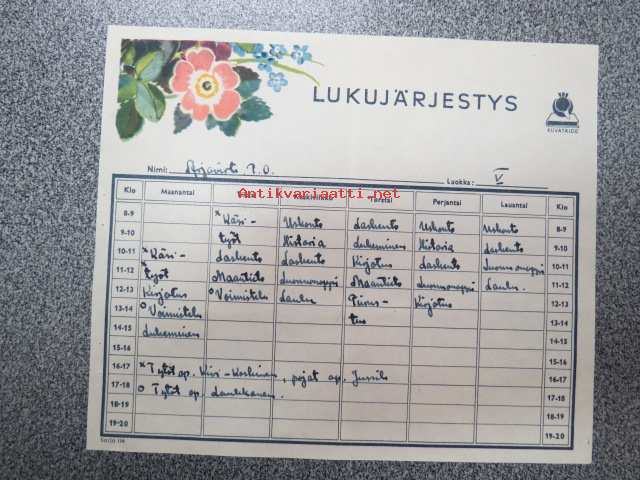 LUKUJÄRJESTYS
KUVATAIDE
Nimi: P.O. Luokka: V
Antikvariaatti.net
Klo Maanantai Tiistai Keskiviikko Torstai Perjantai Lauantai Klo
8-9 x Käsi- Uskonto Laskento Uskonto Uskonto 8-9
9-10 työt Historia Lukeminen Historia Laskento 9-10
10-11 x Käsi- Laskento Laskento Kirjoitus Laskento Luonnonoppi 10-11
11-12 x työt Maantieto Luonnonoppi Maantieto Luonnonoppi Laulu 11-12
12-13 Kirjoitus o Voimistelu Laulu Piirus- Kirjoitus 12-13
13-14 o Voimistelu tus 13-14
14-15 Lukeminen 14-15
15-16 15-16
16-17 x Tytöt op. Kivi-Koskinen, pojat op. Jussila 16-17
17-18 o Tytöt op. 17-18
18-19 18-19
19-20 19-20